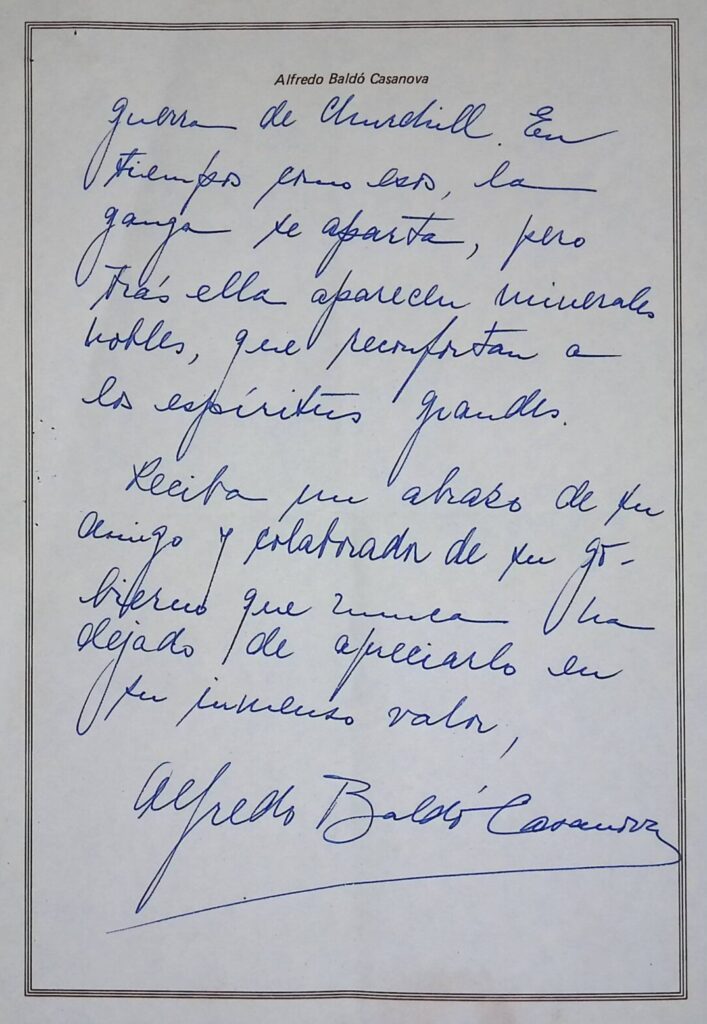 Alfredo Baldó Casanova
guerra de Churchill. En
tiempos como esos, la
ganga se aparta, pero
trás ella aparecen minerales
nobles, que reconfortan a
los espíritus grandes.
Reciba un abrazo de su
amigo y colaborador de su go-
bierno que nunca ha
dejado de apreciarlo en
su inmenso valor,
Alfredo Baldó Casanova